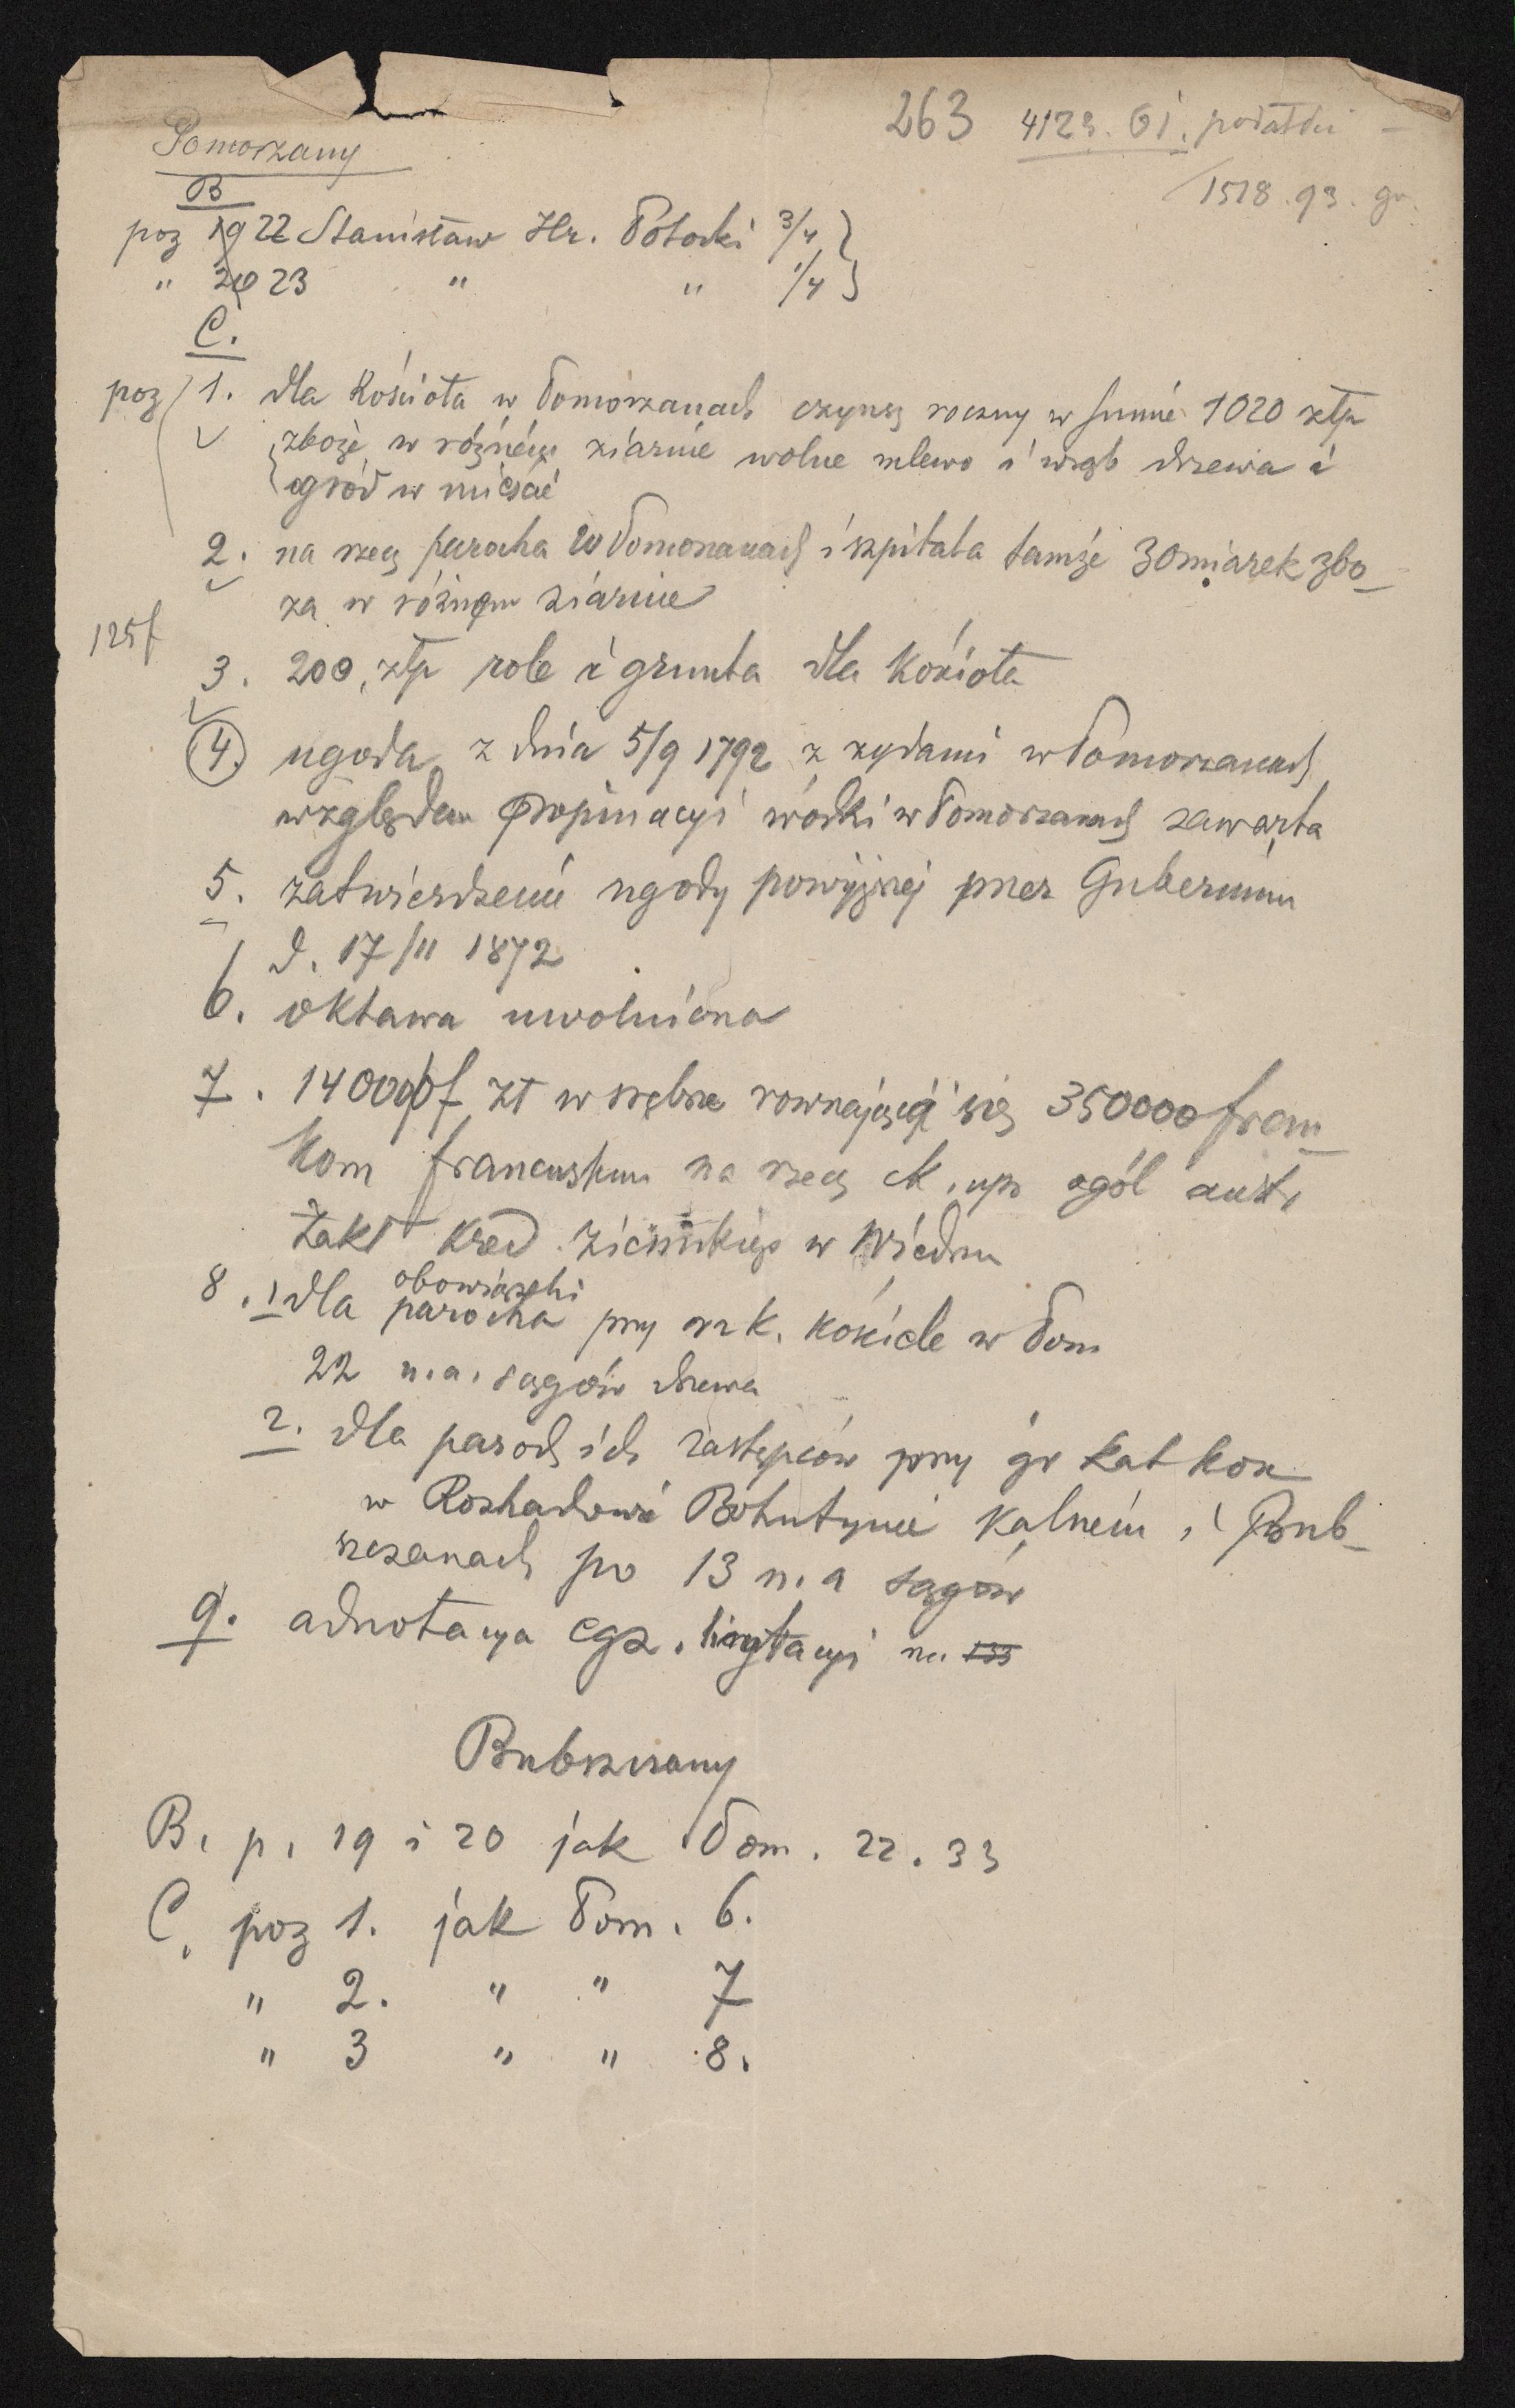 263 4123. 61. podatki -
1518.93. gr.
Pomorzany
B
poz 19 22 Stanisław Hr. Potocki 3/4 }
" 20 23 " " 1/4 }
C.
poz 1. dla Kościoła w Pomorzanach czynsz roczny w sumie 1020 złp
zboże w różnem ziarnie wolne mlewo i wrąb drzewa i
ogród w mieście
2. na rzecz parocha w Pomorzanach i szpitala tamże 30 miarek zbo-
ża w różnem ziarnie
125 f
3. 200 złp role i grunta dla Kościoła
4. ugoda z dnia 5/9 1792 z zydami w Pomorzanach
względem propinacyi wódki w Pomorzanach zawarta
5. zatwierdzenie ugody powyższej przez Gubernium
d. 17/11 1872
6. oktawa uwolniona
7. 140000 f zł w srebrze rownającej się 350000 fran-
kom francuskim na rzecz ck. upr ogól aust.
Zakł kred. ziemskiego w Wiedniu
obowiązki
8. 1 dla parocha przy rz k. kościele w Pom
22 n. a. sągów drzewa
2. dla paroch ich zastępców przy gr kat kos
w Rozhadowie Bohutynie Kalnem i Bub-
szczanach po 13 n. a sągów
9. adnotacya egz. licytacyi na 133
Bubszczany
B. p. 19 i 20 jak Pom. 22. 33
C. poz 1. jak Pom. 6.
" 2. " " 7
" 3 " " 8.